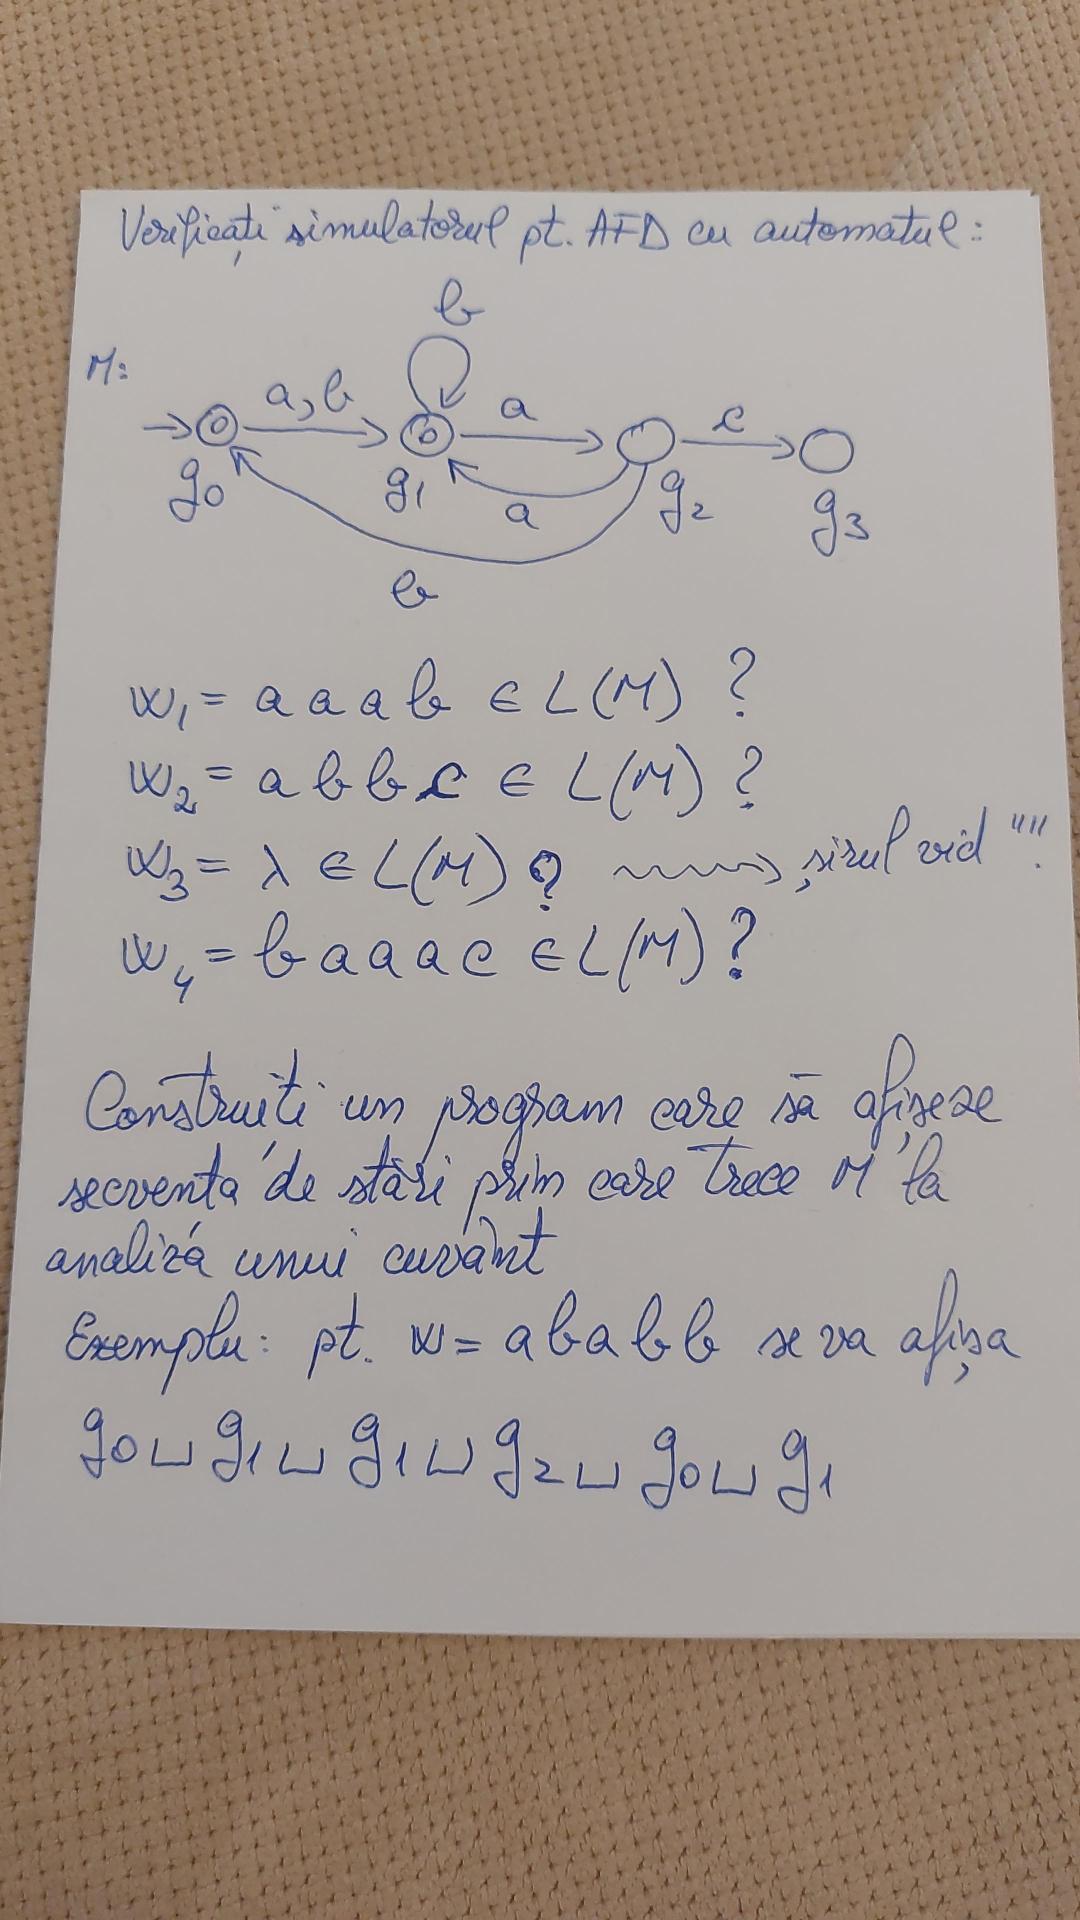 Verificați simulatorul pt. AFD cu automatul:
b
M:
a,b a c
q0 q1 a q2 q3
b
w1 = a a a b ∈ L(M) ?
w2 = a b b c ∈ L(M) ?
w3 = λ ∈ L(M) ? șirul vid "".
w4 = b a a a c ∈ L(M) ?
Construiți un program care să afișeze
secvența de stări prin care trece M la
analiză unui cuvânt
Exemplu: pt. w = a b a b b se va afișa
q0 ␣ q1 ␣ q1 ␣ q2 ␣ q0 ␣ q1